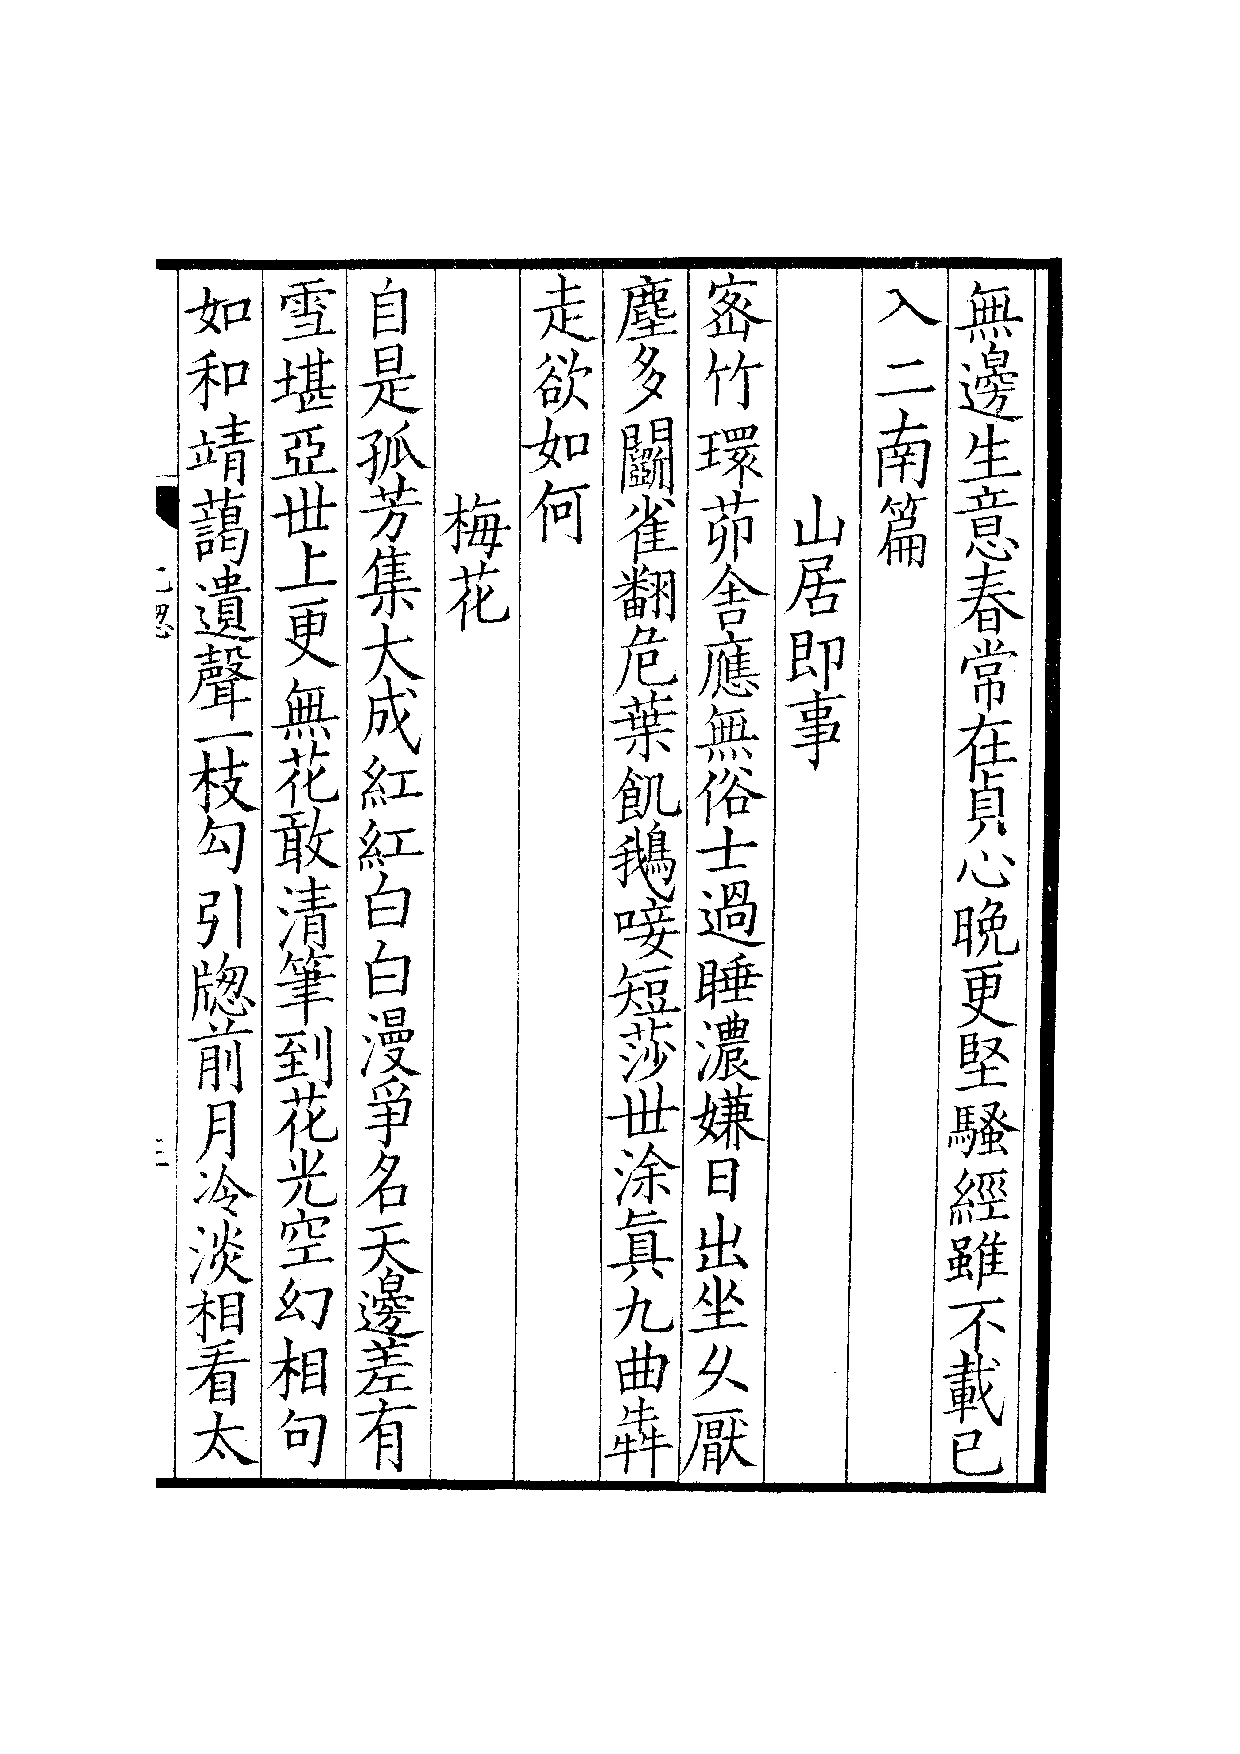 無邊生意春常在貞心晩更堅騷經雖不載已
入二南篇
山居即事
宻竹環茆舍應無俗士過睡濃嫌日出坐乆厭
塵多鬭雀翻危葉飢鵝唼短莎世涂眞九曲犇
走欲如何
梅花
自是孤芳集大成紅紅白白漫爭名天邊差有
雪堪亞世上更無花敢清筆到花光空幻相句
如和靖藹遺聲一枝勾引牎前月冷淡相看太